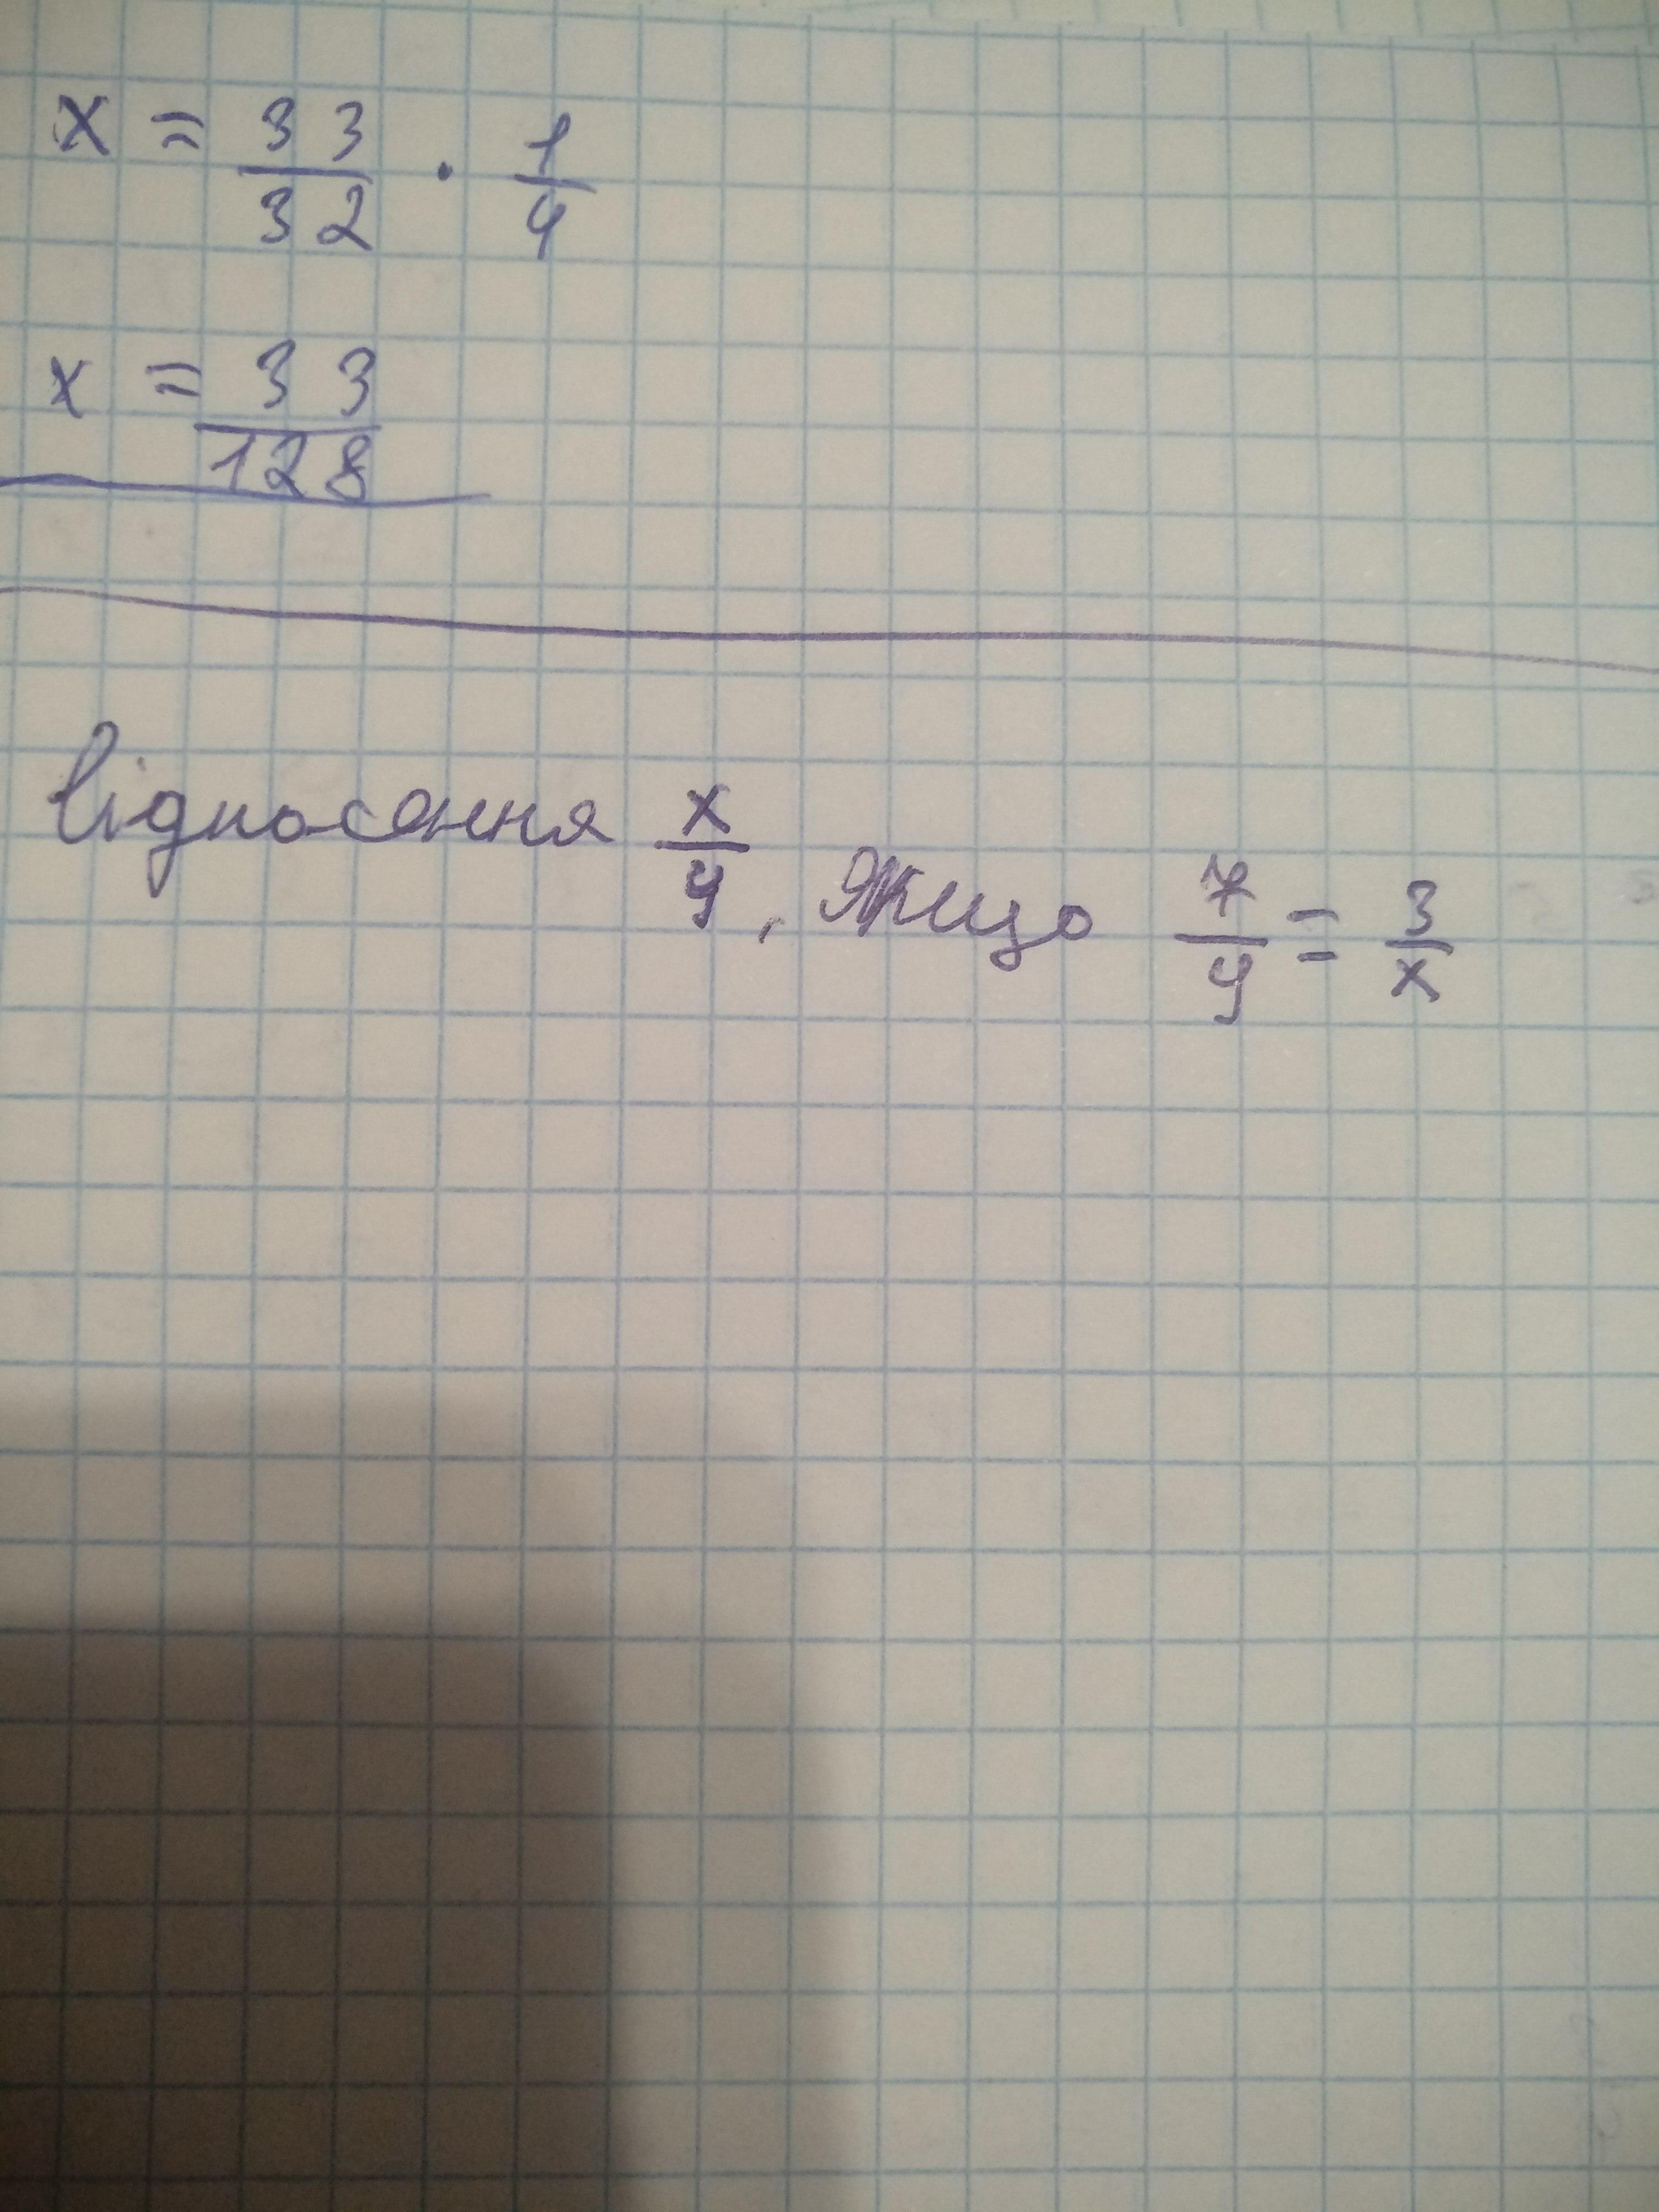 x = 33/32 · 1/4
x = 33/128
Відносення x/y, якщо 7/y = 3/x